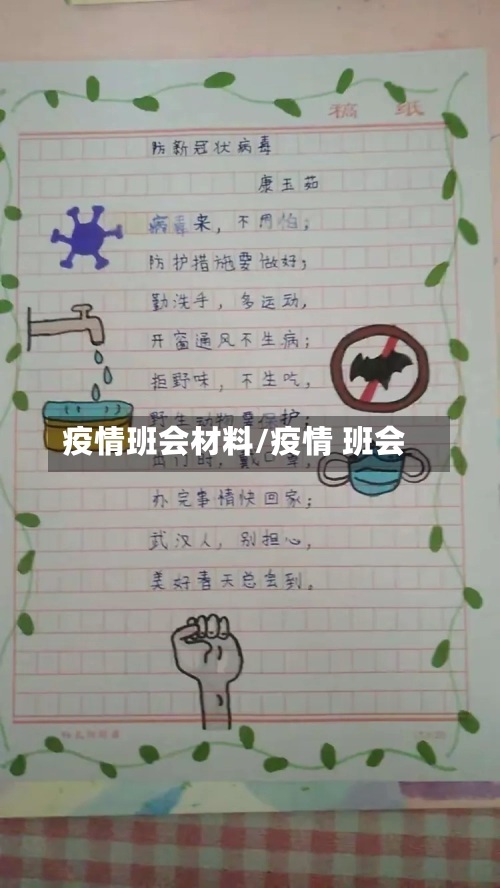 稿 纸
防新冠状病毒
康玉茹
病毒来，不用怕；
防护措施要做好；
勤洗手，多运动，
开窗通风不生病；
拒野味，不生吃，
野生动物要保护；
疫情班会材料/疫情 班会
出行时，戴口罩，
办完事情快回家；
武汉人，别担心，
美好春天总会到。